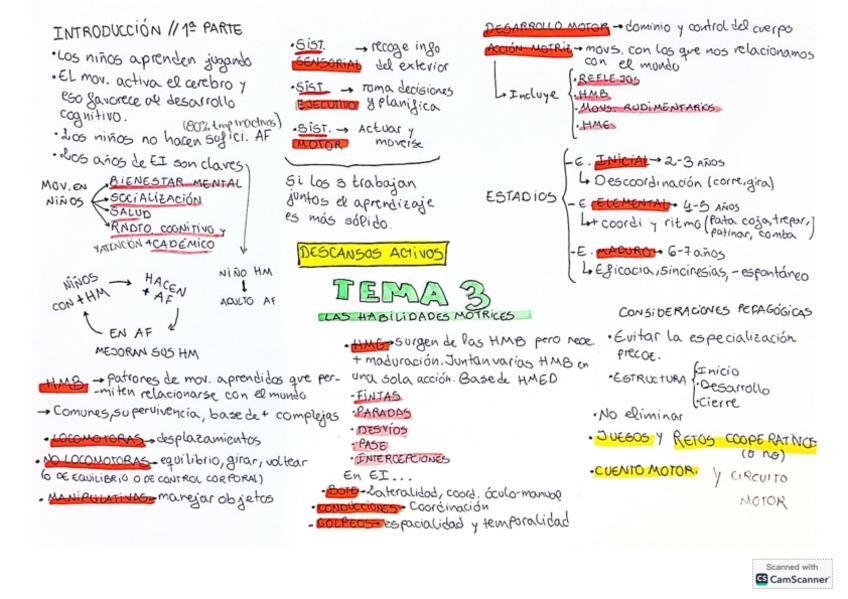 INTRODUCCIÓN // 1ª PARTE
• Los niños aprenden jugando
• El mov. activa el cerebro y
eso favorece al desarrollo
cognitivo.
(80% tmp inactivos)
• Los niños no hacen sufici. AF
• Los años de EI son claves
MOV. EN
NIÑOS
BIENESTAR MENTAL
SOCIALIZACIÓN
SALUD
RNDTO COGNITIVO y
Y ATENCIÓN + CADÉMICO
NIÑOS
CON + HM
HACEN
+ AF
EN AF
MEJORAN SUS HM
NIÑO HM
ADULTO AF
HMB → patrones de mov. aprendidos que per-
-miten relacionarse con el mundo
→ Comunes, supervivencia, base de + complejas
• LOCOMOTORAS → desplazamientos
• NO LOCOMOTORAS → equilibrio, girar, voltear
(O DE EQUILIBRIO O DE CONTROL CORPORAL)
• MANIPULATIVAS → manejar objetos
• SIST. SENSORIAL → recoge info
del exterior
• SIST. EJECUTIVO → toma decisiones
y planifica
• SIST. MOTOR → Actuar y
moverse
Si los 3 trabajan
juntos el aprendizaje
es más sólido.
DESCANSOS ACTIVOS
TEMA 3
LAS HABILIDADES MOTRICES
• HMG → surgen de las HMB pero nece.
+ maduración. Juntan varias HMB en
una sola acción. Base de HMED
• FINTAS
• PARADAS
• DESVÍOS
• PASE
• INTERCEPCIONES
En EI...
• BOTE → Lateralidad, coord. óculo-manual
• CONDUCCIONES → Coordinación
• GOLPEOS → espacialidad y temporalidad
DESARROLLO MOTOR → dominio y control del cuerpo
ACCIÓN MOTRIZ → movs. con los que nos relacionamos
con el mundo
Incluye
• REFLEJOS
• HMB
• MOVS. RUDIMENTARIOS
• HME
ESTADIOS
- E. INICIAL → 2-3 AÑOS
Descoordinación (corre, gira)
- E. ELEMENTAL → 4-5 AÑOS
+ coordi y ritmo (pata coja, trepar,
patinar, comba)
- E. MADURO → 6-7 años
Eficacia, sincinesias, - espontáneo
CONSIDERACIONES PEDAGÓGICAS
• Evitar la especialización
precoz.
• ESTRUCTURA
Inicio
Desarrollo
Cierre
• No eliminar
• JUEGOS Y RETOS COOPERATIVOS
(O NO)
• CUENTO MOTOR. Y CIRCUITO
MOTOR
Scanned with
CS CamScanner